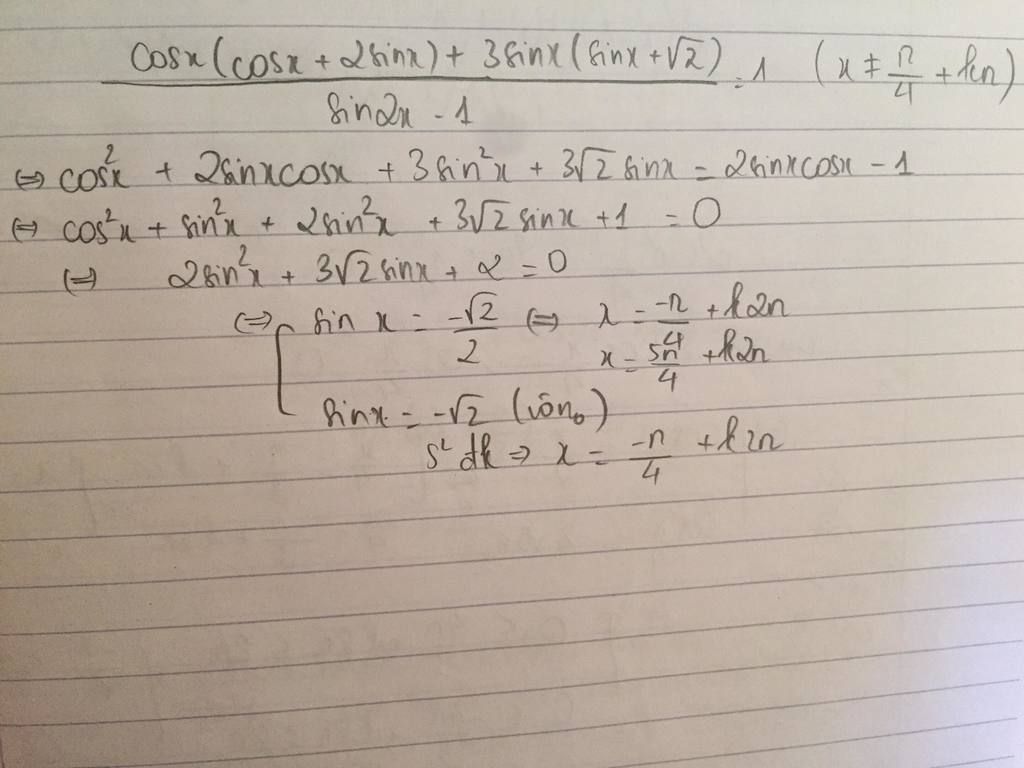 (cosx(cosx + 2sinx) + 3sinx(sinx + √2))/(sin2x - 1) = 1 (x ≠ π/4 + kπ)
⇔ cos²x + 2sinxcosx + 3sin²x + 3√2 sinx = 2sinxcosx - 1
⇔ cos²x + sin²x + 2sin²x + 3√2 sinx + 1 = 0
⇔ 2sin²x + 3√2 sinx + 2 = 0
⇔ [ sin x = -√2/2 ⇔ x = -π/4 + k2π
x = 5π/4 + k2π
sinx = -√2 (vôn₀)
s² đk ⇒ x = -π/4 + k2π